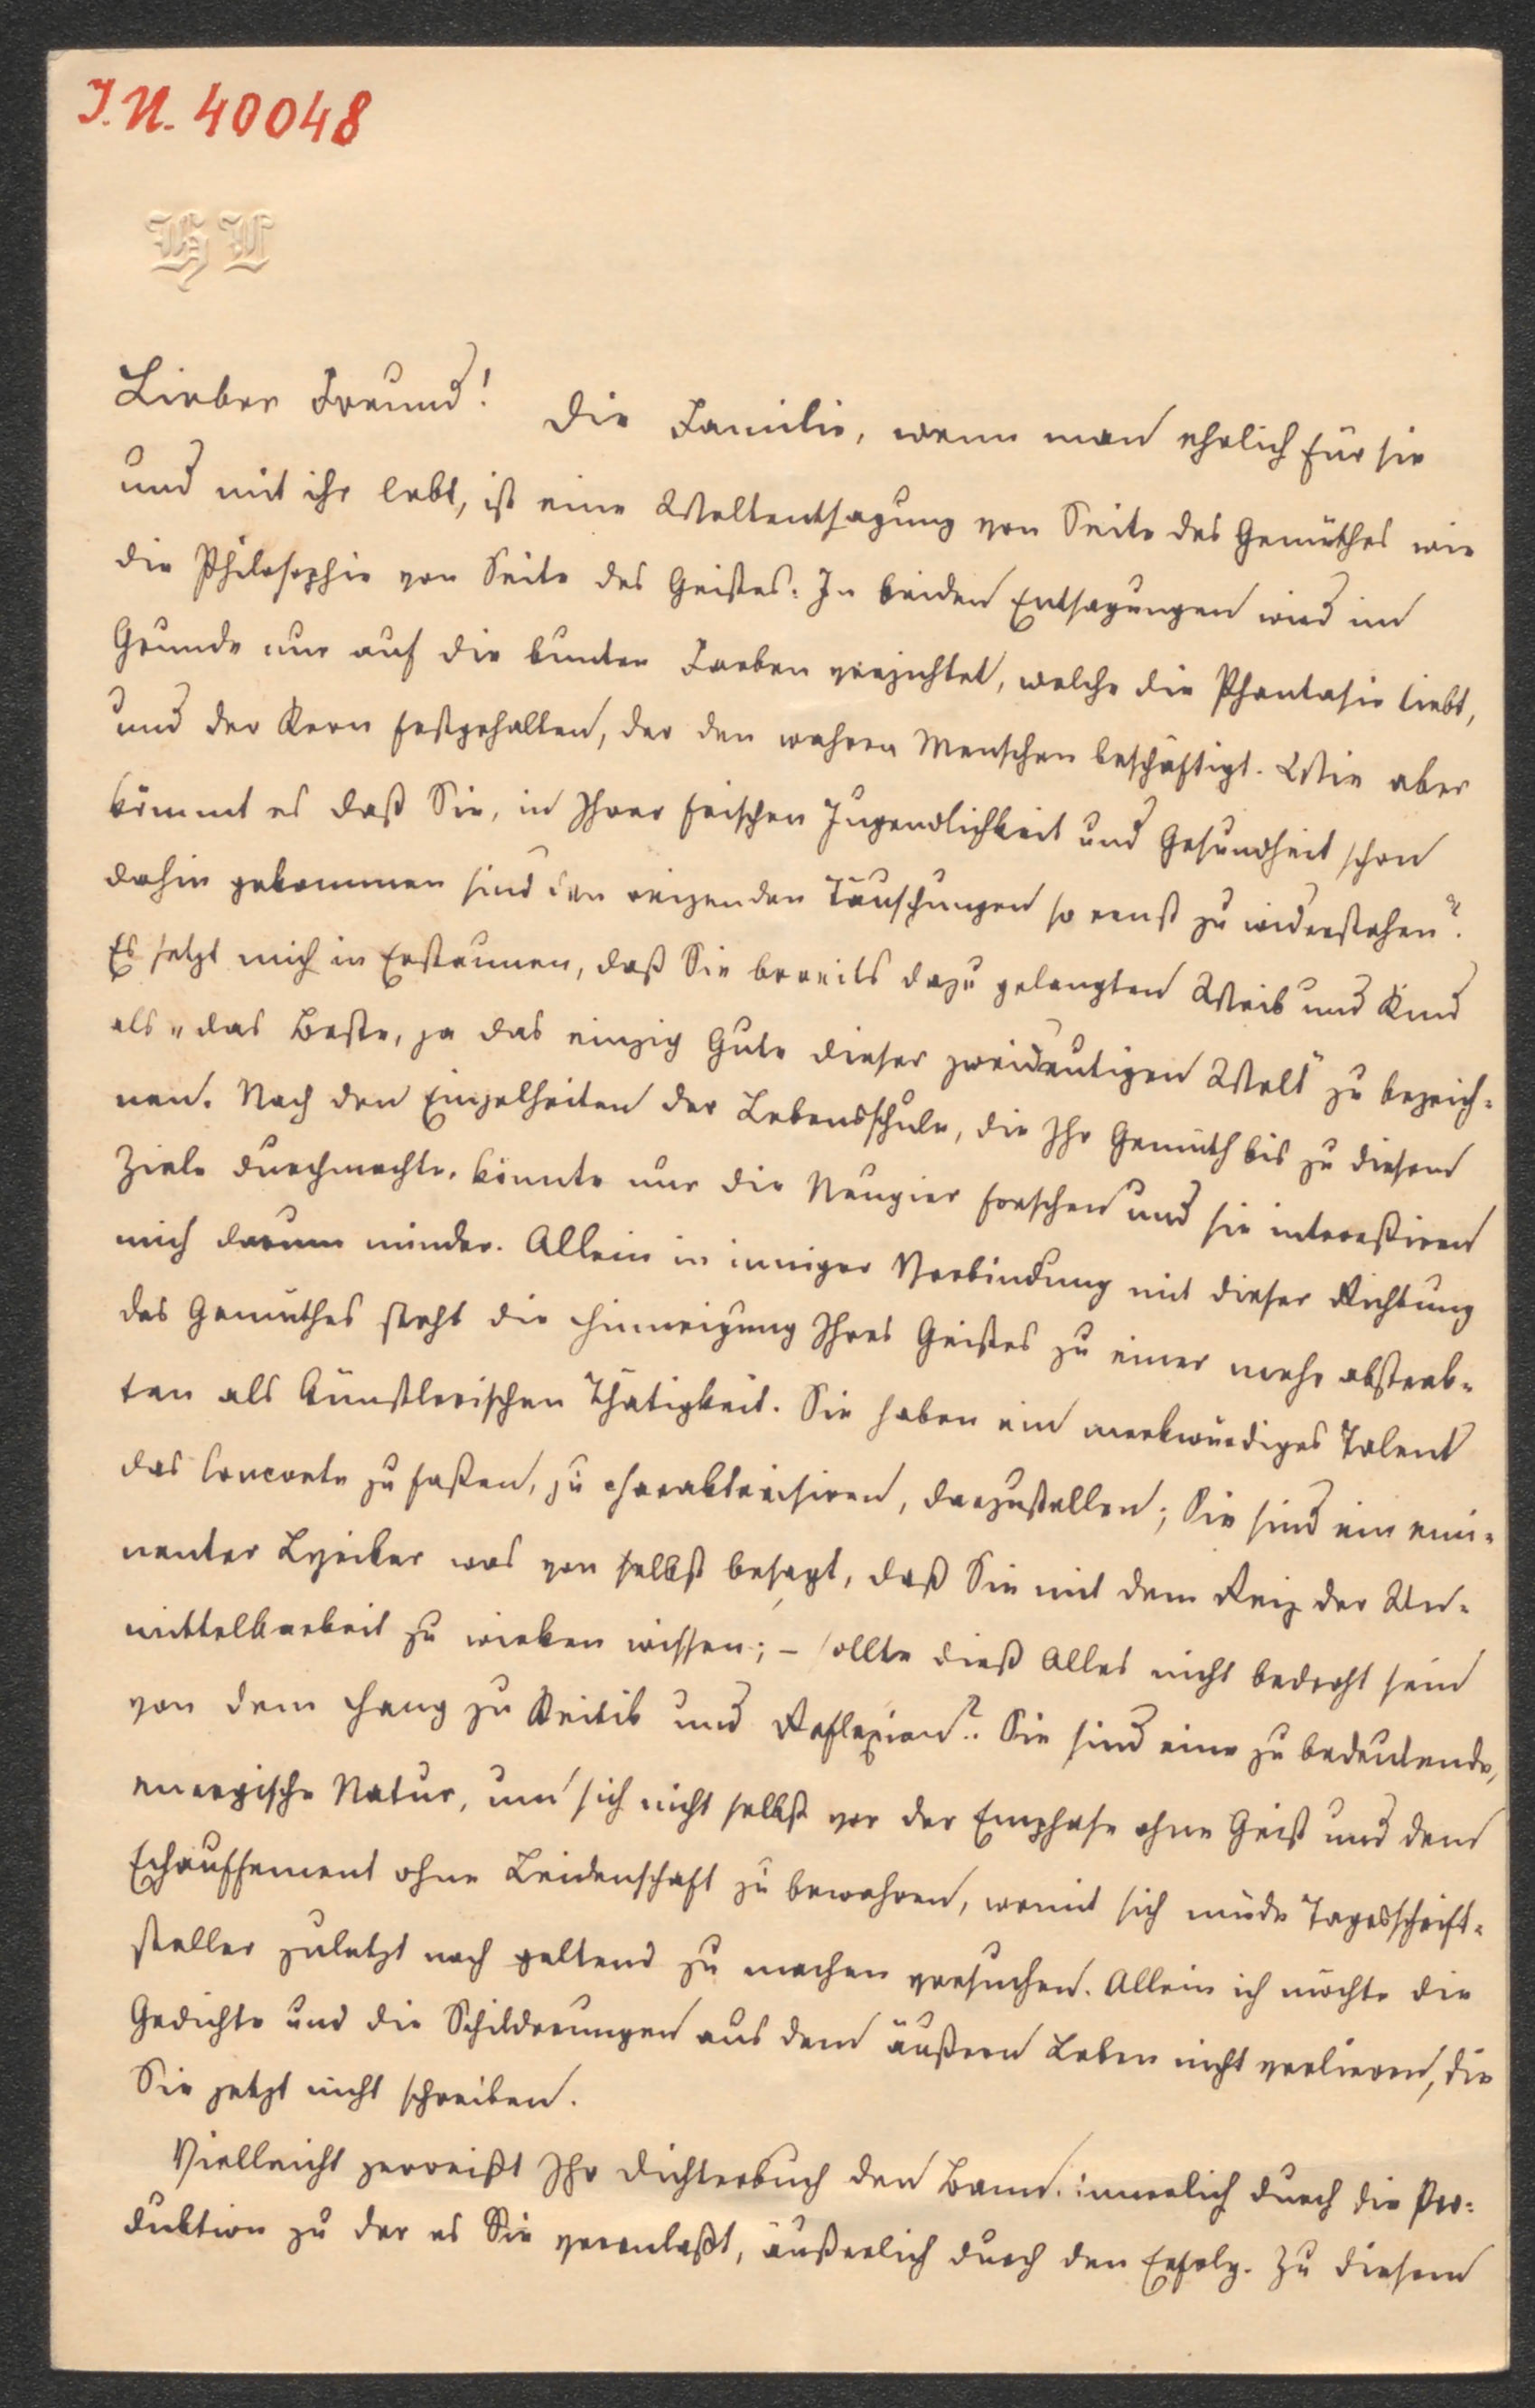 I.N. 40048
HL
Lieber Freund! Die Familie, wenn man ehrlich für sie
und mit ihr lebt, ist eine Weltentsagung von Seite des Gemüthes wie
die Philosophie von Seite des Geistes. In beiden Entsagungen wird im
Grunde nur auf die bunten Farben verzichtet, welche die Phantasie liebt,
und der Kern festgehalten, der den wahren Menschen beschäftigt. Wie aber
kömmt es daß Sie, in Ihrer frischen Jugendlichkeit und Gesundheit schon
dahin gekommen sind den reizenden Täuschungen so ernst zu widerstehen?
Es setzt mich in Erstaunen, daß Sie bereits dazu gelangten Weib und Kind
als „das Beste, ja das einzig Gute dieser zweideutigen Welt" zu bezeich-
nen. Nach den Einzelheiten der Lebensschule, die Ihr Gemüth bis zu diesem
Ziele durchmachte, könnte nur die Neugier forschen und sie interessiren
mich darum minder. Allein in inniger Verbindung mit dieser Richtung
des Gemüthes steht die Hinneigung Ihres Geistes zu einer mehr abstrak-
ten als künstlerischen Thätigkeit. Sie haben ein merkwürdiges Talent
das Concrete zu faßen, zu charakterisiren, darzustellen; Sie sind ein emi-
nenter Lyriker was von selbst besagt, daß Sie mit dem Reiz der Un-
mittelbarkeit zu wirken wissen; – sollte dieß Alles nicht bedroht sein
von dem Hang zu Kritik und Reflexion? Sie sind eine zu bedeutende,
energische Natur, um sich nicht selbst vor der Emphase ohne Geist und dem
Echauffement ohne Leidenschaft zu bewahren, womit sich müde Tagesschrift-
steller zuletzt noch geltend zu machen versuchen. Allein ich möchte die
Gedichte und die Schilderungen aus dem äußern Leben nicht verlieren, die
Sie jetzt nicht schreiben.
Vielleicht zerreißt Ihr Dichterbuch den Bann: innerlich durch die Pro-
duktion zu der es Sie veranlaßt, äußerlich durch den Erfolg. Zu diesem